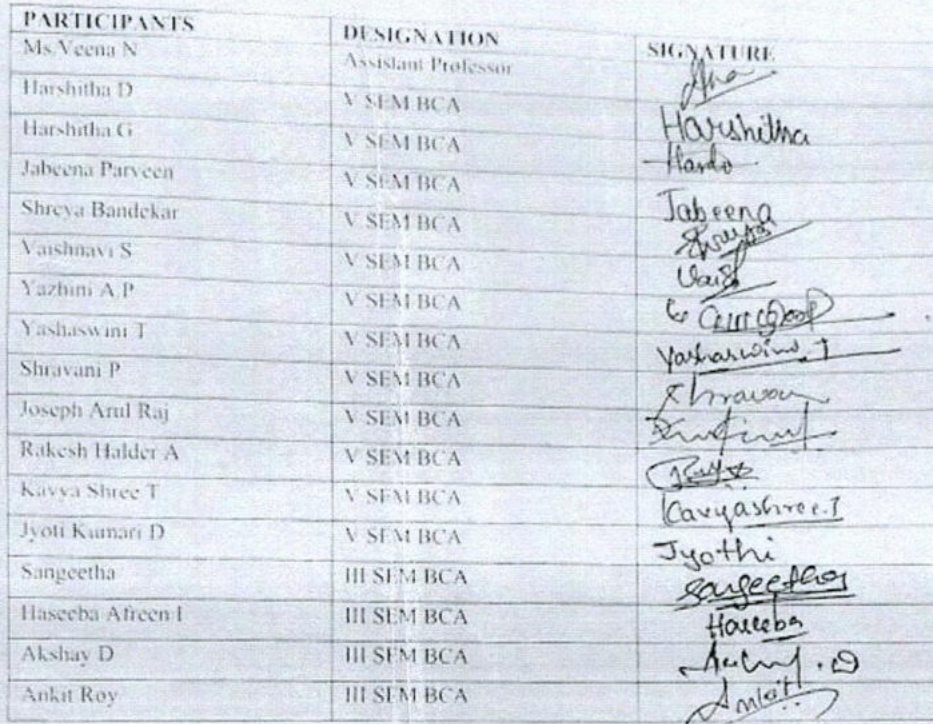 PARTICIPANTS DESIGNATION SIGNATURE
Ms.Veena N Assistant Professor
Harshitha D V SEM BCA Harshitha
Harshitha G V SEM BCA
Jabeena Parveen V SEM BCA Jabeena
Shreya Bandekar V SEM BCA
Vaishnavi S V SEM BCA Vaish
Yazhini A P V SEM BCA
Yashaswini T V SEM BCA Yashaswini T
Shravani P V SEM BCA
Joseph Arul Raj V SEM BCA
Rakesh Halder A V SEM BCA
Kavya Shree T V SEM BCA Kavyashree.T
Jyoti Kumari D V SEM BCA Jyothi
Sangeetha III SEM BCA Sangeetha
Haseeba Afreen I III SEM BCA Haseeba
Akshay D III SEM BCA
Ankit Roy III SEM BCA Ankit